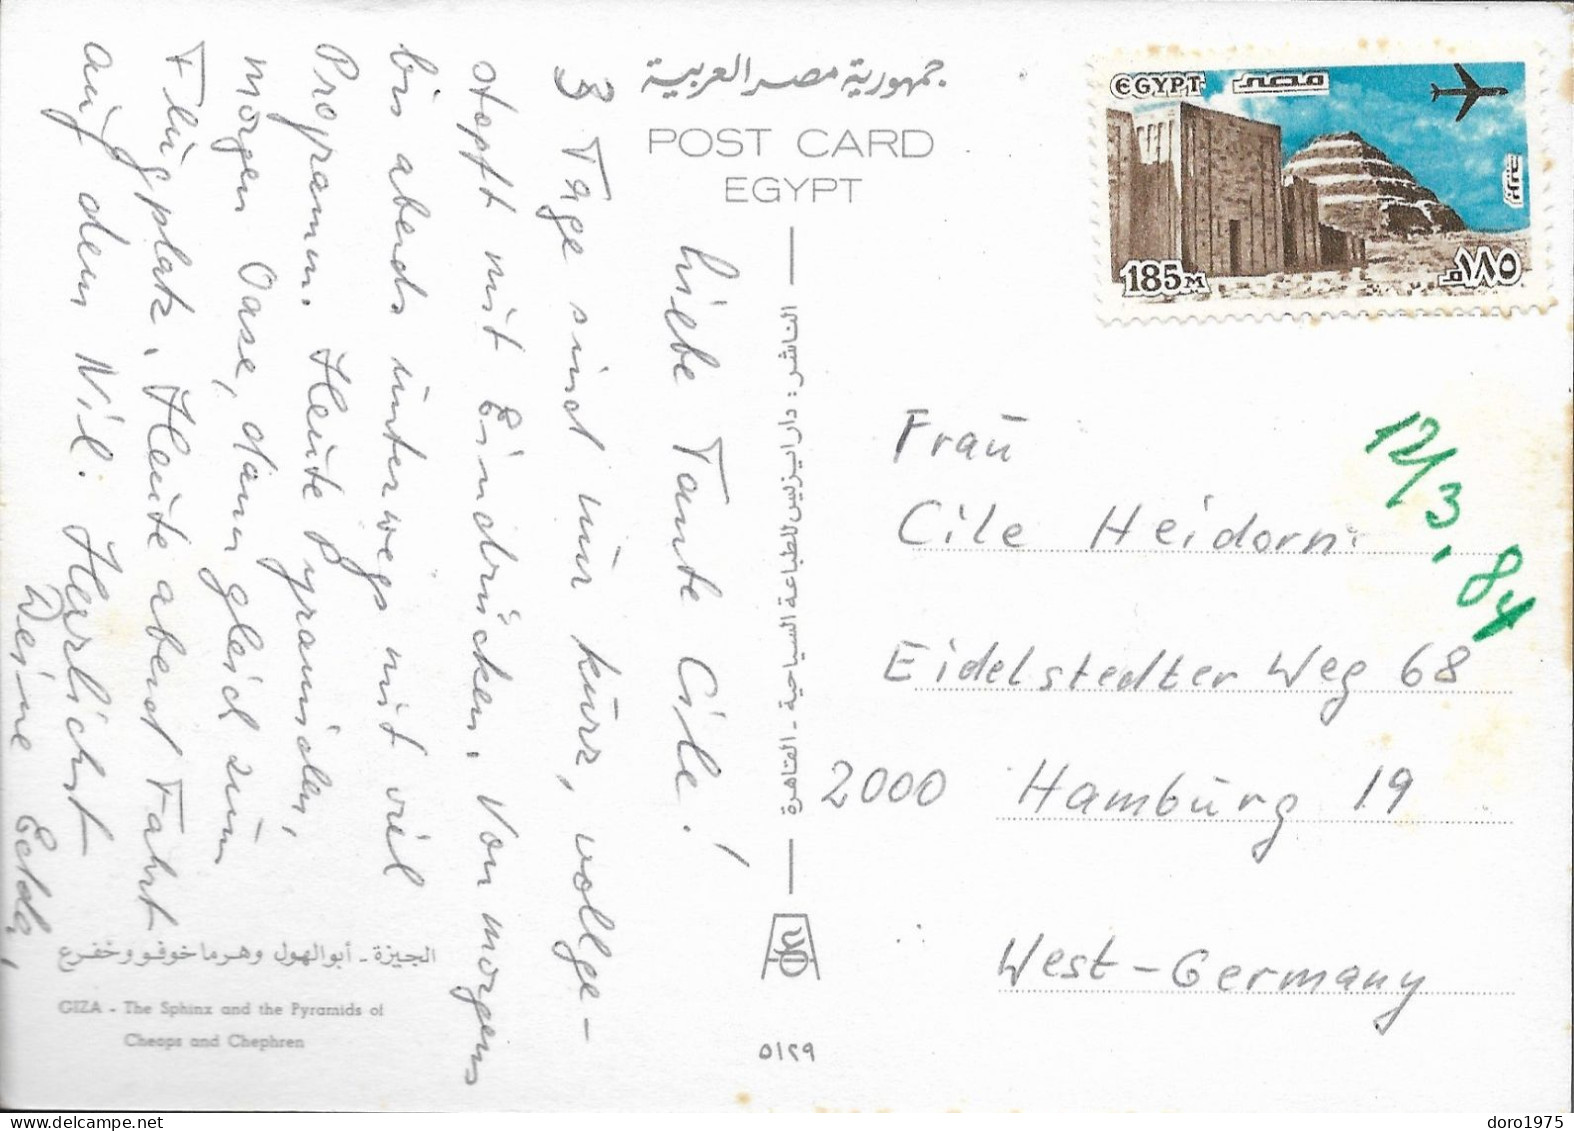 جمهورية مصر العربية
POST CARD
EGYPT
EGYPT
مصر
185M
١٨٥م
Liebe Tante Cile!
3 Tage sind nur kurz, vollge-
stopft mit Eindrücken. Von morgens
bis abends unterwegs mit viel
Programm. Heute Pyramiden,
morgen Oase, dann gleich zum
Flugplatz. Heute abend Fahrt
auf dem Nil. Herzlichst
Deine Edda
Frau
Cile Heidorn
Eidelstedter Weg 68
2000 Hamburg 19
West-Germany
12/3.84
الناشر : دار ايزيس للطباعة السياحية - القاهرة
٥١٢٩
الجيزة - أبو الهول وهرما خوفو وخفرع
GIZA - The Sphinx and the Pyramids of
Cheops and Chephren
doro1975